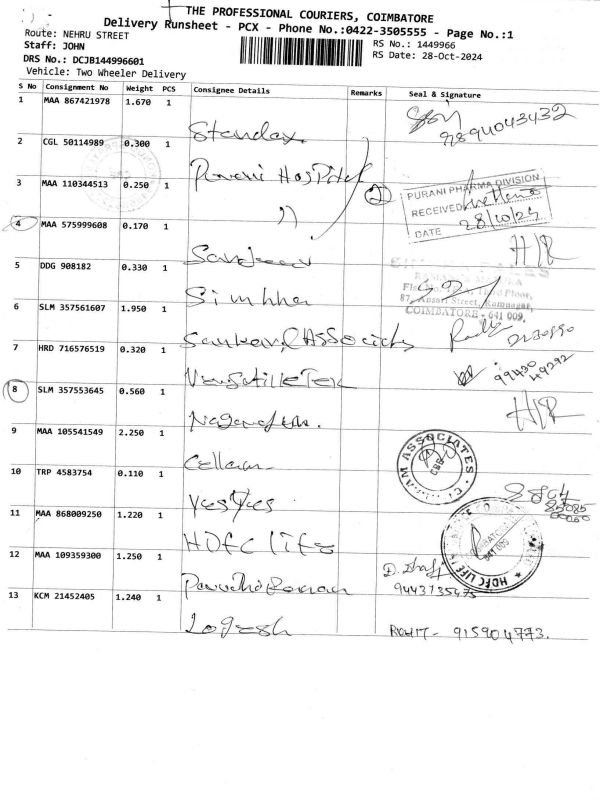 THE PROFESSIONAL COURIERS, COIMBATORE
Delivery Runsheet - PCX - Phone No.:0422-3505555 - Page No.:1
Route: NEHRU STREET
RS No.: 1449966
Staff: JOHN
RS Date: 28-Oct-2024
DRS No.: DCJB144996601
Vehicle: Two Wheeler Delivery
S No Consignment No Weight PCS Consignee Details Remarks Seal & Signature
1 MAA 867421978 1.670 1
Standax 9894043432
2 CGL 50114989 0.300 1
Purani Hospital
3 MAA 110344513 0.250 1
" 2
PURANI PHARMA DIVISION
RECEIVED
DATE 28/10/24
4 MAA 575999608 0.170 1
H/R
5 DDG 908182 0.330 1
Simhha
Third Floor,
87, Ansari Street, Ramnagar,
COIMBATORE - 641 009.
6 SLM 357561607 1.950 1
Sankar & Associates
7 HRD 716576519 0.320 1
99430
49292
8 SLM 357553645 0.560 1
H/R
9 MAA 105541549 2.250 1
ASSOCIATES
CBE
10 TRP 4583754 0.110 1
Yes Yes
85085
11 MAA 868009250 1.220 1
HDFC life
HDFC LIFE
12 MAA 109359300 1.250 1
9443735475
13 KCM 21452405 1.240 1
Logesh 915904773.